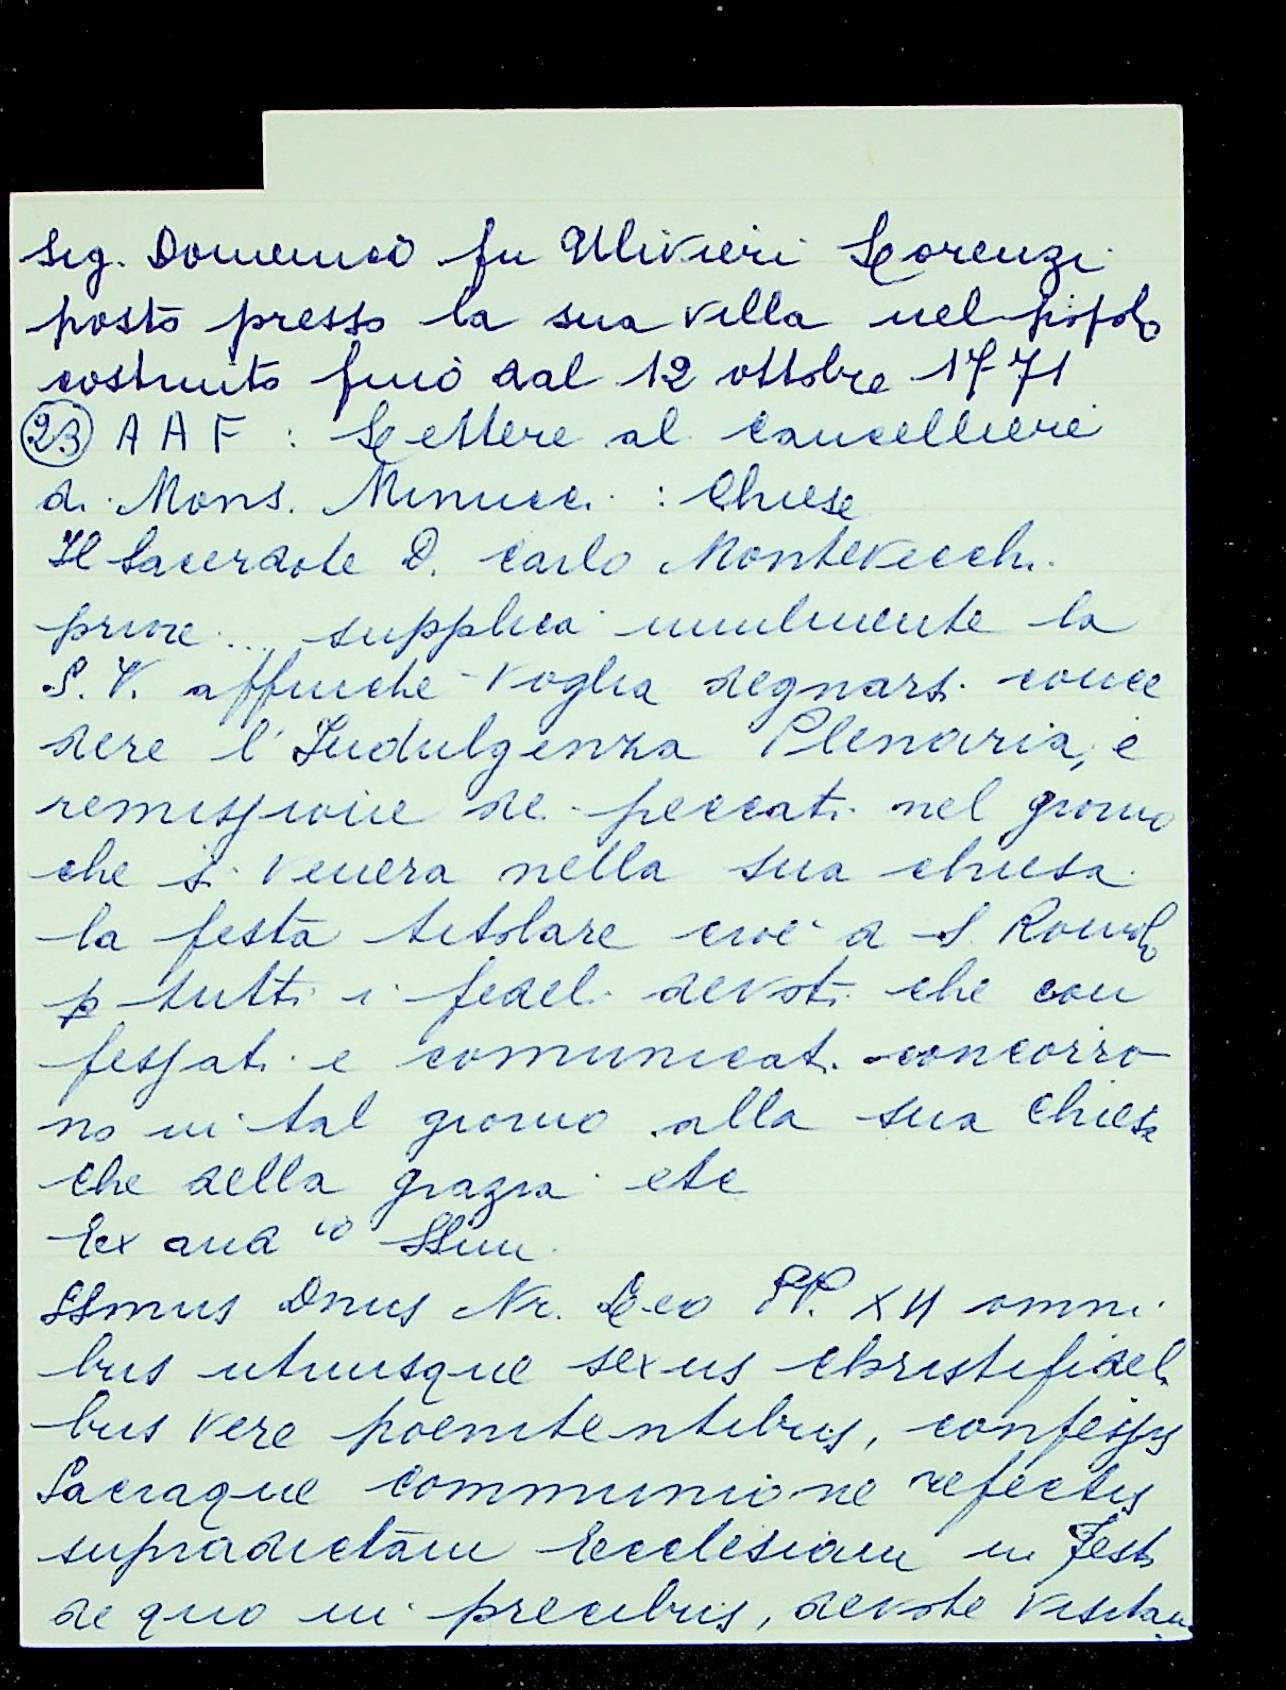 Sig. Domenico fu Ulivieri Lorenzi
posto presso la sua villa nel popolo
costruito fino dal 12 ottobre 1771
(23) A A F : Lettere al Cancelliere
di Mons. Minucci : Chiese
Il Sacerdote D. Carlo Montevecchi
priore ... supplica umilmente la
S. V. affinche voglia degnarsi conce
dere l'Indulgenza Plenaria, e
remissione de peccati nel giorno
che si venera nella sua chiesa
la festa titolare cioè a S. Romolo
p tutti i fedeli devoti che con
fessati e comunicati concorro
no in tal giorno alla sua Chiesa
che della grazia etc
Ex aud co SSmi
SSmus Dnus Nr. Leo PP. XII omni
bus utriusque sexus christifideli
bus vere poenitentibus, confessis
Sacraque communione refectis
supradictam Ecclesiam in Festo
de quo in precibus, devote visitan